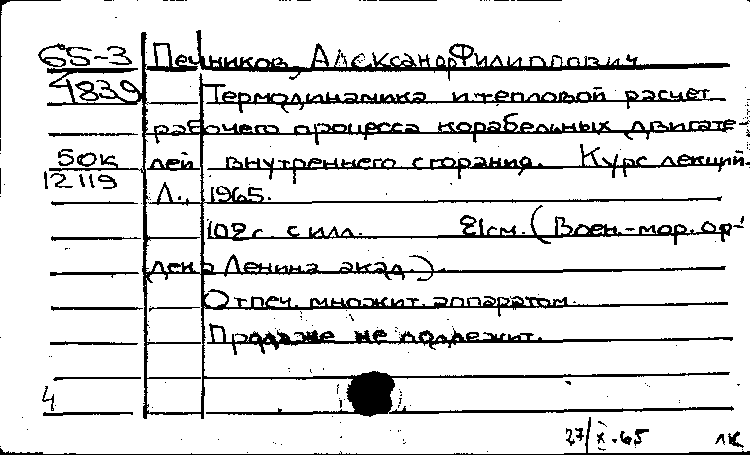 65-3 Печников, Александр Филиппович
4839 Термодинамика и тепловой расчет
рабочего процесса корабельных двигате-
50к лей внутреннего сгорания. Курс лекций.
12119 Л., 1965.
102 с. с илл. 21см. (Воен.-мор. ор-
дена Ленина акад.).
Отпеч. множит. аппаратом.
Продаже не подлежит.
4
27/X.65 ЛК